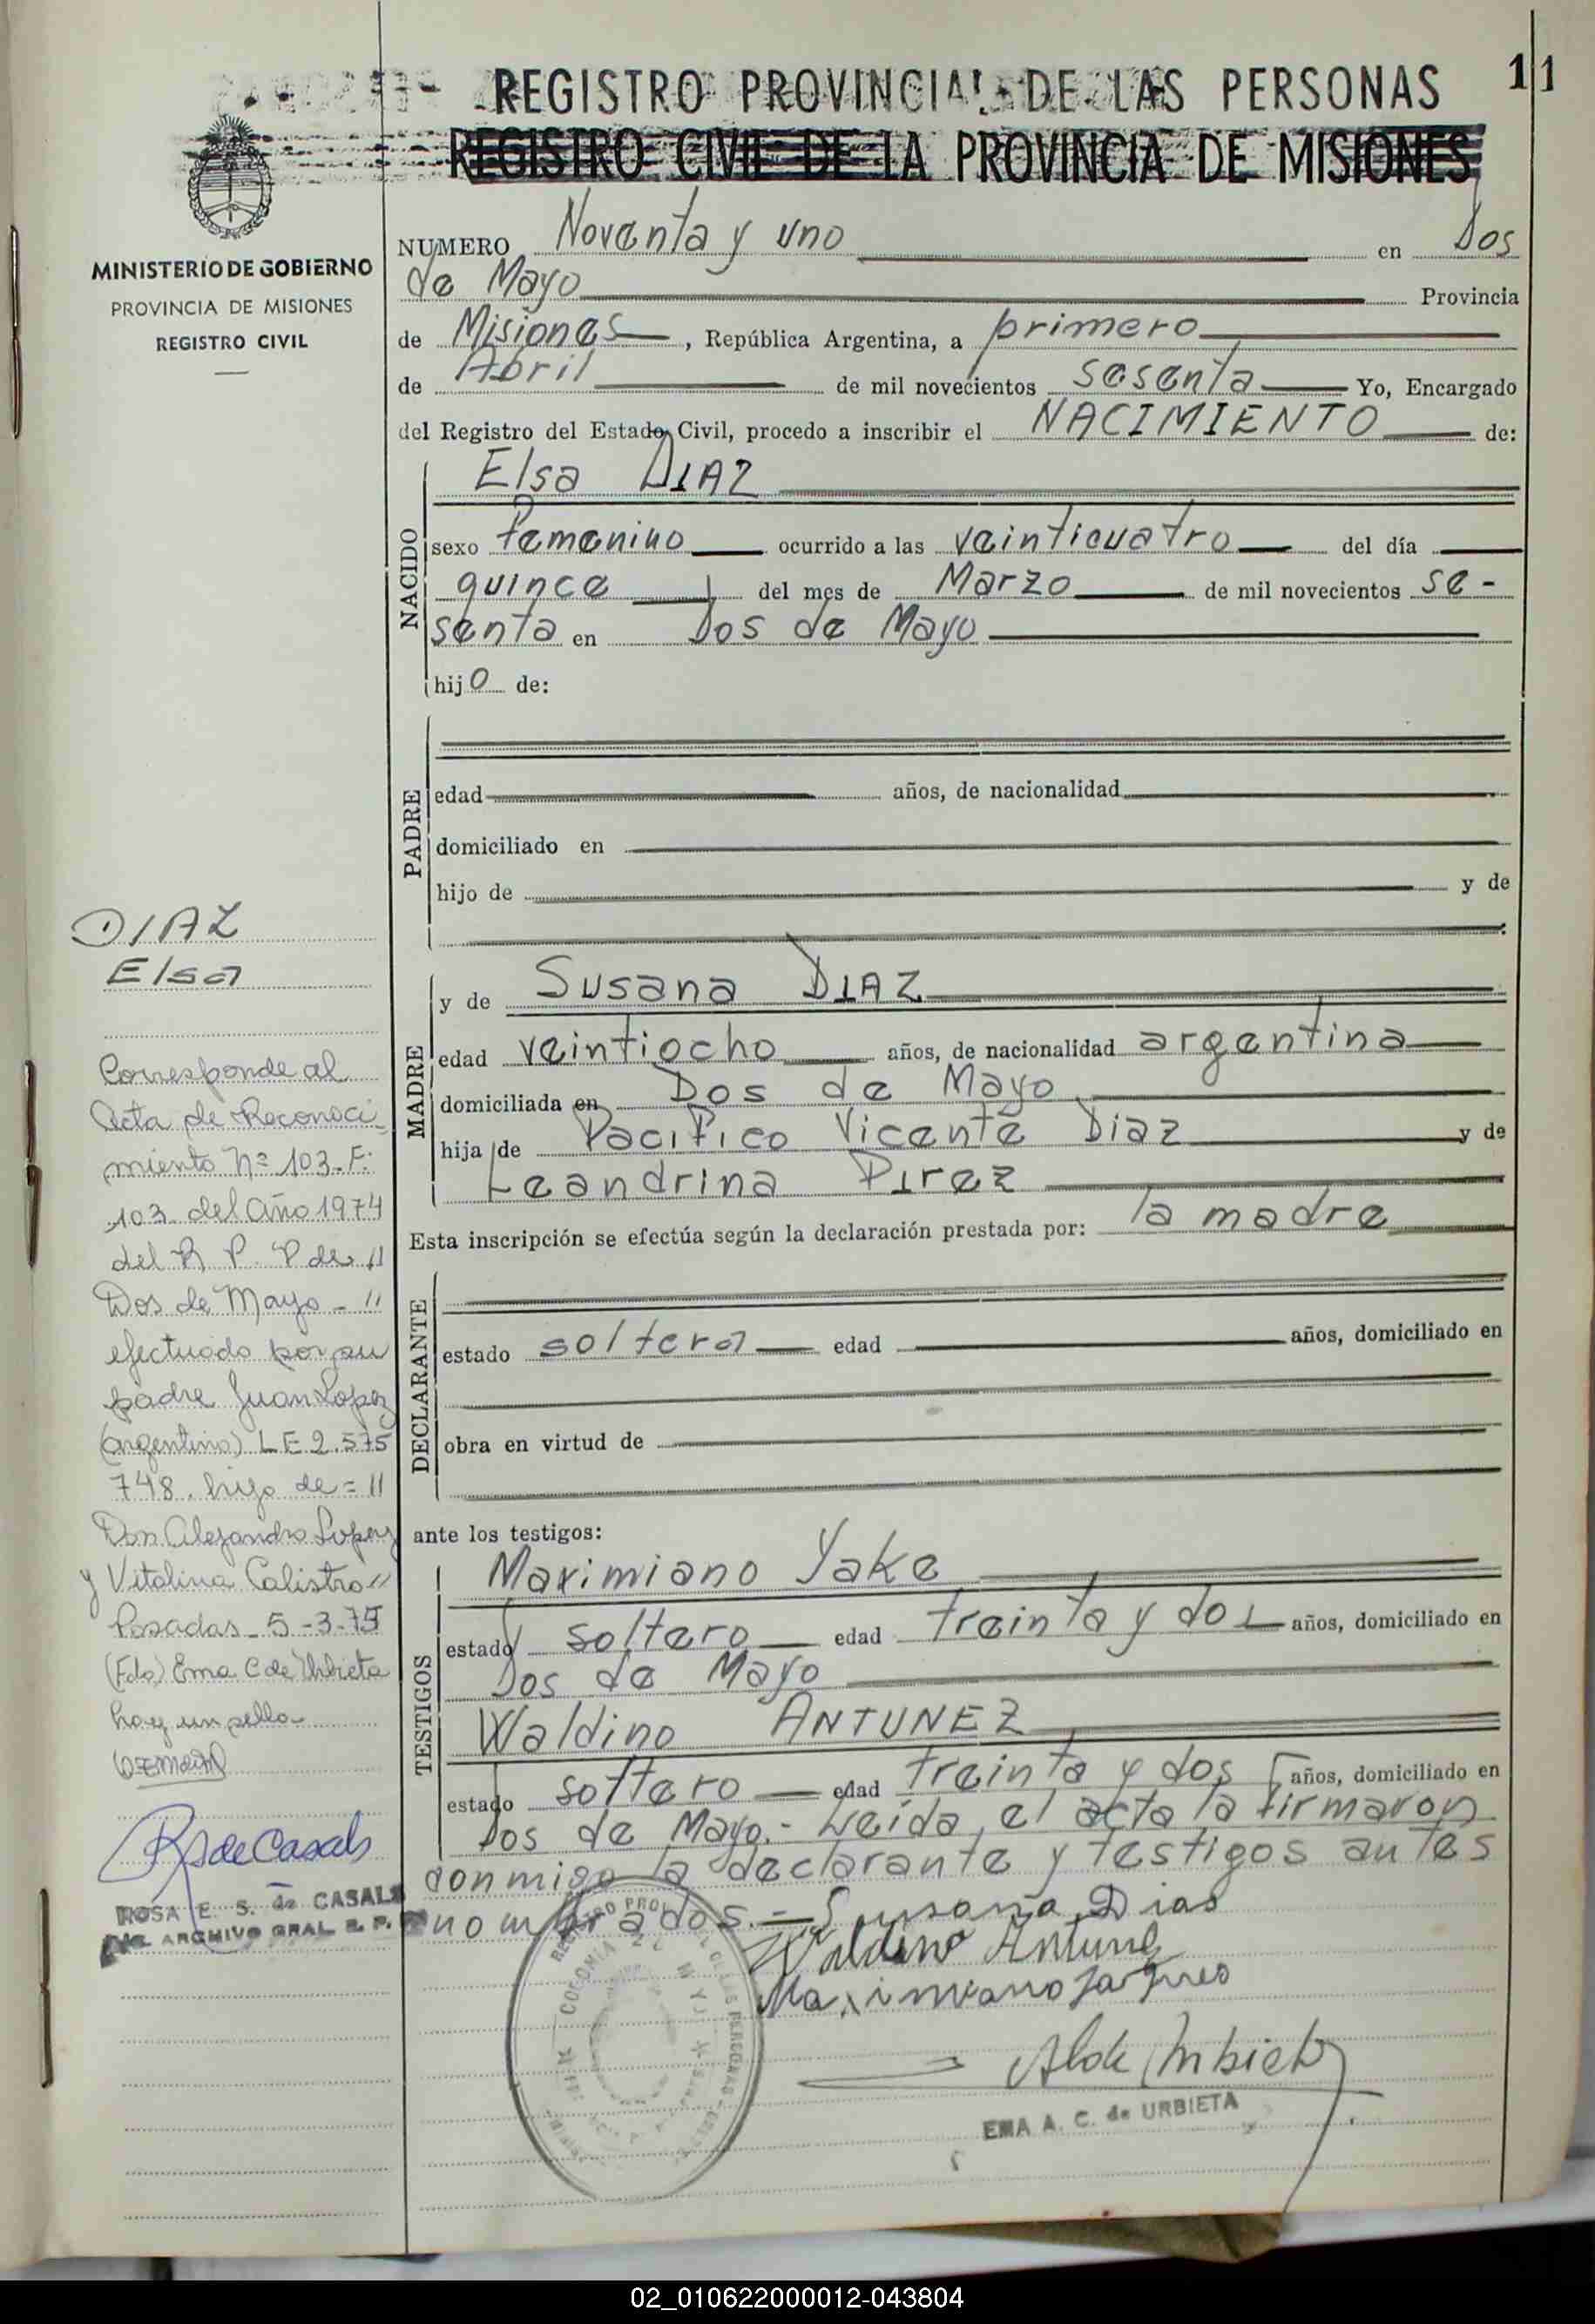 11
REGISTRO PROVINCIAL DE LAS PERSONAS
REGISTRO CIVIL DE LA PROVINCIA DE MISIONES
MINISTERIO DE GOBIERNO
PROVINCIA DE MISIONES
REGISTRO CIVIL
NUMERO Noventa y uno en Dos
de Mayo Provincia
de Misiones, República Argentina, a primero
de Abril de mil novecientos sesenta Yo, Encargado
del Registro del Estado Civil, procedo a inscribir el NACIMIENTO de:
NACIDO
Elsa DIAZ
sexo femenino ocurrido a las veinticuatro del día
quince del mes de Marzo de mil novecientos se-
senta en Dos de Mayo
hijo de:
PADRE
edad años, de nacionalidad
domiciliado en
hijo de y de
MADRE
y de Susana DIAZ
edad veintiocho años, de nacionalidad argentina
domiciliada en Dos de Mayo
hija de Pacifico Vicente Diaz y de
Leandrina Pirez
Esta inscripción se efectúa según la declaración prestada por: la madre
DECLARANTE
estado soltera edad años, domiciliado en
obra en virtud de
ante los testigos:
TESTIGOS
Maximiano Yake
estado soltero edad treinta y dos años, domiciliado en
Dos de Mayo
Waldino ANTUNEZ
estado soltero edad treinta y dos años, domiciliado en
Dos de Mayo.- Leída el acta la firmaron
conmigo la declarante y testigos antes
nombrados.- Susana Dias
Waldino Antunez
EMA A. C. de URBIETA
DIAZ
Elsa
Corresponde al
Acta de Reconoci-
miento Nº 103-F:
103 del Año 1974
del R P. P de //
Dos de Mayo - //
efectuado por su
padre Juan Lopez
(argentino) LE 2.575
748. hijo de = //
Don Alejandro Lopez
y Vitalina Calistro //
Posadas - 5-3-75
(Fdo) Ema C de Urbieta
hay un sello
RSdeCasals
ROSA E. S. de CASALS
ARCHIVO GRAL. R. P.
02_010622000012-043804